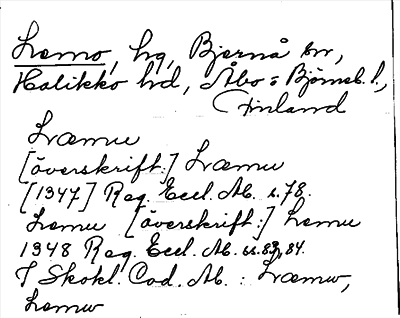 Lemo, hg, Bjernå sn,
Halikko hd, Åbo o Björneb. l.,
Finland
Læmu
[överskrift:] Læmu
[1347] Reg. Eccl. Ab. s. 78.
Lemu [överskrift:] Lemu
1348 Reg. Eccl. Ab. ss. 83, 84.
I Skokl. Cod. Ab. : Læmw,
Lemw